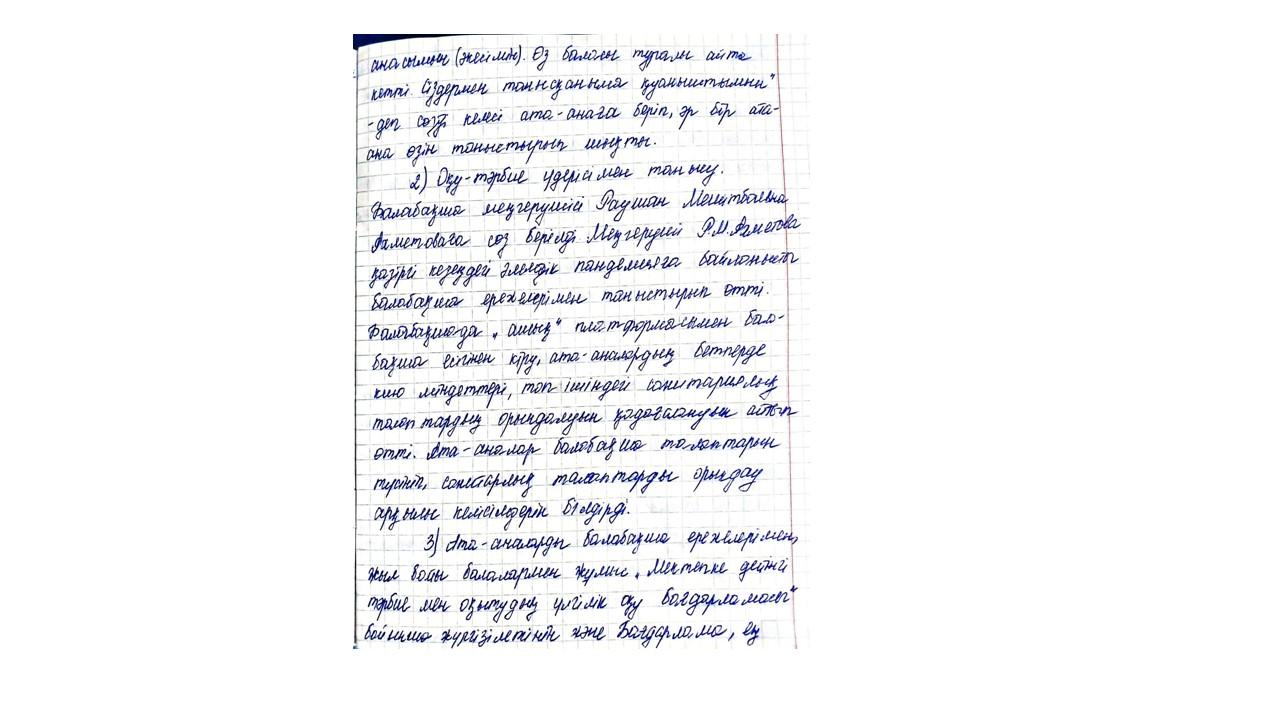 анасымын (әкесімін). Өз баласы туралы айта
кетті. Сіздермен танысқаныма қуаныштымын"
-деп сөзді келесі ата-анаға беріп, әр бір ата-
ана өзін таныстырып шықты.
2) Оқу-тәрбие үдерісімен танысу.
Балабақша меңгерушісі Раушан
Ахметоваға сөз берілді. Меңгеруші Р.М.Ахметова
қазіргі кезеңдегі әлемдік пандемияға байланысты
балабақша ережелерімен таныстырып өтті.
Балабақшада „ашық" платформасымен бала-
бақша есігінен кіру, ата-аналардың бетперде
кию міндеттері, топ ішіндегі санитариялық
талаптардың орындалуын қадағалануын айтып
өтті. Ата-аналар балабақша талаптарын
түсініп, санитарлық талаптарды орындау
арқылы келісімдерін білдірді.
3) Ата-аналарды балабақша ережелерімен,
жыл бойы балалармен жұмыс „Мектепке дейінгі
тәрбие мен оқытудың үлгілік оқу бағдарламасы"
бойынша жүргізілетінін және Бағдарлама, ең